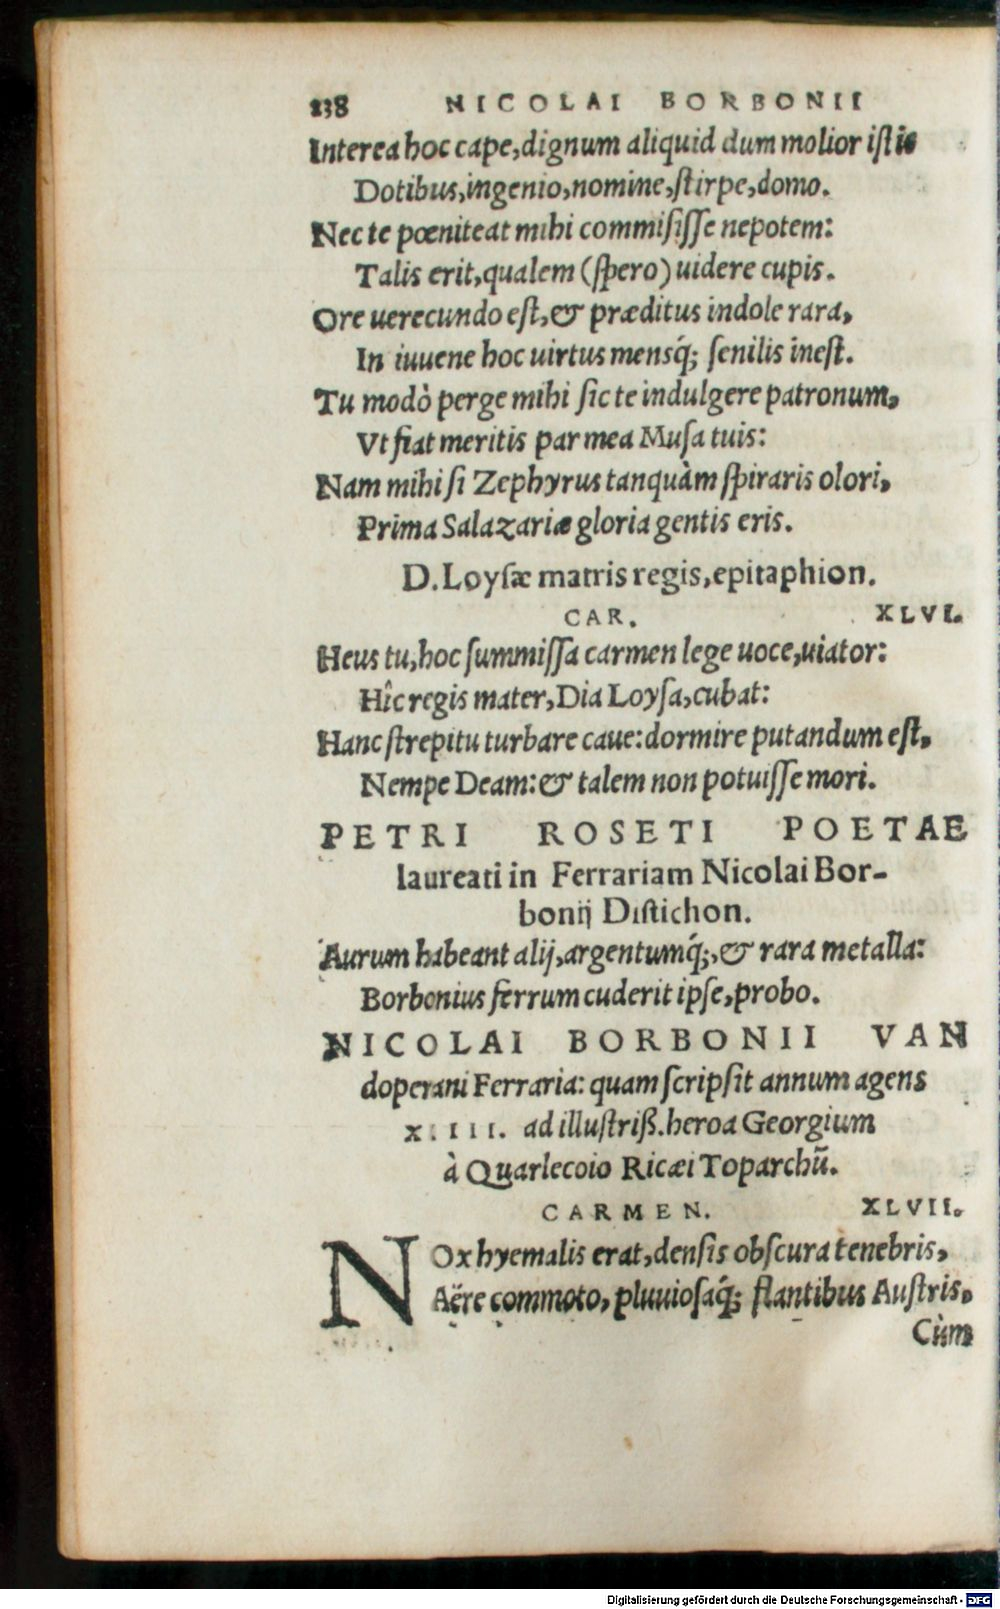 138 NICOLAI BORBONII
Interea hoc cape, dignum aliquid dum molior istis
Dotibus, ingenio, nomine, stirpe, domo.
Nec te pœniteat mihi commisisse nepotem:
Talis erit, qualem (spero) uidere cupis.
Ore uerecundo est, & præditus indole rara,
In iuuene hoc uirtus mensq́; senilis inest.
Tu modò perge mihi sic te indulgere patronum,
Vt fiat meritis par mea Musa tuis:
Nam mihi si Zephyrus tanquàm spiraris olori,
Prima Salazariæ gloria gentis eris.
D. Loysæ matris regis, epitaphion.
CAR. XLVI.
Heus tu, hoc summissa carmen lege uoce, uiator:
Hîc regis mater, Dia Loysa, cubat:
Hanc strepitu turbare caue: dormire putandum est,
Nempe Deam: & talem non potuisse mori.
PETRI ROSETI POETAE
laureati in Ferrariam Nicolai Bor-
bonij Distichon.
Aurum habeant alij, argentumq́;, & rara metalla:
Borbonius ferrum cuderit ipse, probo.
NICOLAI BORBONII VAN
doperani Ferraria: quam scripsit annum agens
XIIII. ad illustriß. heroa Georgium
à Quarlecoio Ricæi Toparchū.
CARMEN. XLVII.
NOx hyemalis erat, densis obscura tenebris,
Aëre commoto, pluuiosaq́; flantibus Austris,
Cùm
Digitalisierung gefördert durch die Deutsche Forschungsgemeinschaft - DFG